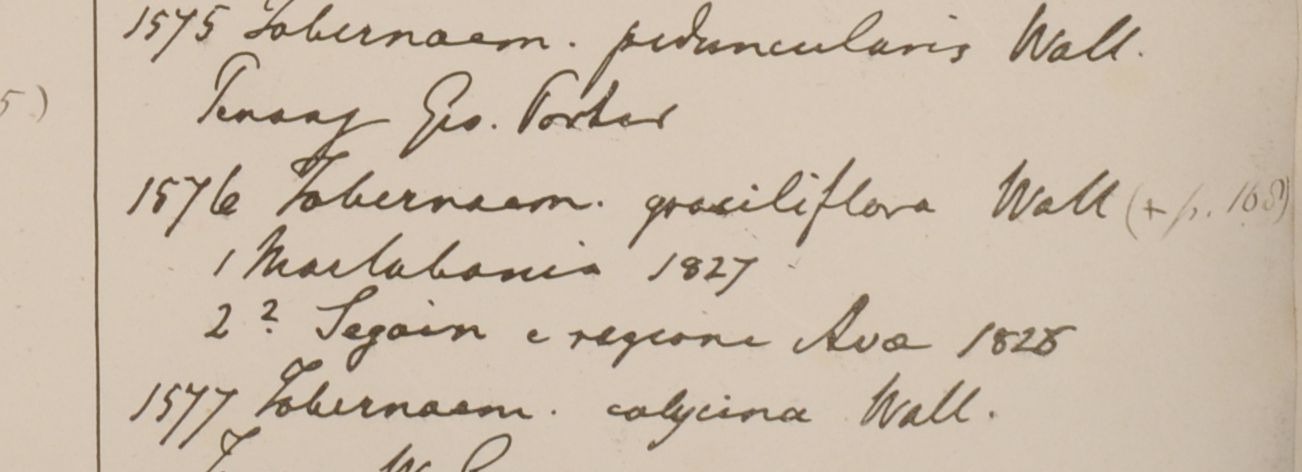 5)
1575 Tabernaem. peduncularis Wall.
Penang Geo. Porter
1576 Tabernaem. graciliflora Wall (+ p. 168)
1 Martabania 1827
2? Segain e regione Avae 1826
1577 Tabernaem. calycina Wall.